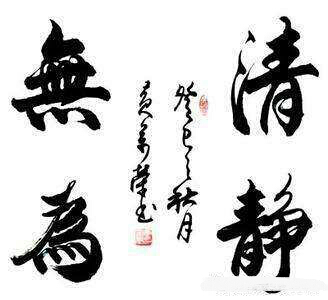 清静
無為
癸巳之秋月